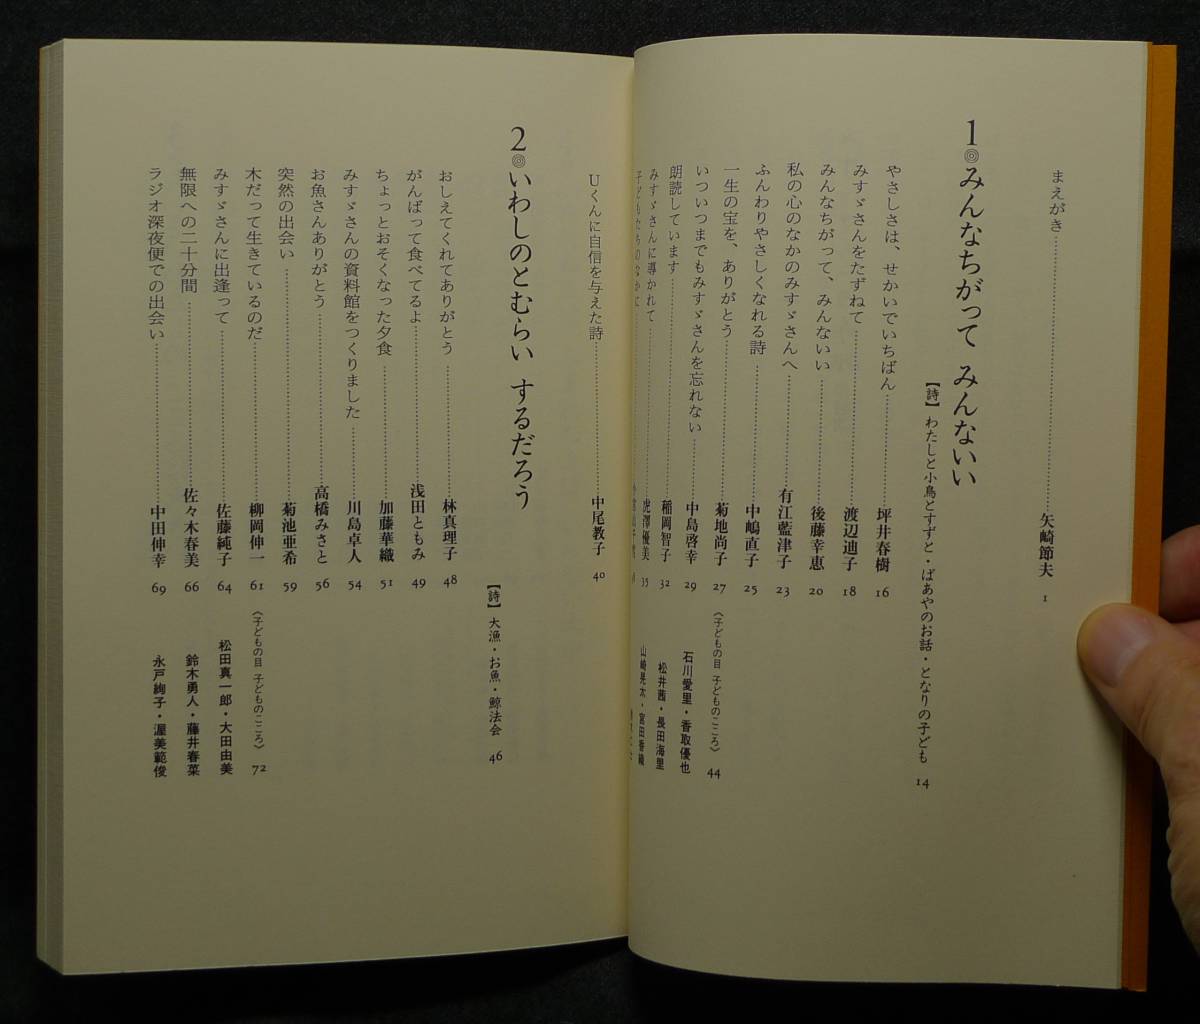 まえがき 矢崎節夫 1
1 みんなちがって みんないい
【詩】わたしと小鳥とすずと・ばあやのお話・となりの子ども 14
やさしさは、せかいでいちばん 坪井春樹 16
みすゞさんをたずねて 渡辺迪子 18
みんなちがって、みんないい 後藤幸恵 20
私の心のなかのみすゞさんへ 有江藍津子 23
ふんわりやさしくなれる詩 中嶋直子 25
一生の宝を、ありがとう 菊地尚子 27
いついつまでもみすゞさんを忘れない 中島啓幸 29
朗読しています 稲岡智子 32
みすゞさんに導かれて 虎澤優美 35
子どもたちのなかに
〈子どもの目 子どものこころ〉 44
石川愛里・香取優也
松井茜・長田海里
山崎晃太・宮田香織
Uくんに自信を与えた詩 中尾教子 40
2 いわしのとむらい するだろう
【詩】大漁・お魚・鯨法会 46
おしえてくれてありがとう 林真理子 48
がんばって食べてるよ 浅田ともみ 49
ちょっとおそくなった夕食 加藤華織 51
みすゞさんの資料館をつくりました 川島卓人 54
お魚さんありがとう 高橋みさと 56
突然の出会い 菊池亜希 59
木だって生きているのだ 柳岡伸一 61
みすゞさんに出逢って 佐藤純子 64
無限への二十分間 佐々木春美 66
ラジオ深夜便での出会い 中田伸幸 69
〈子どもの目 子どものこころ〉 72
松田真一郎・大田由美
鈴木勇人・藤井春菜
永戸絢子・渥美範俊